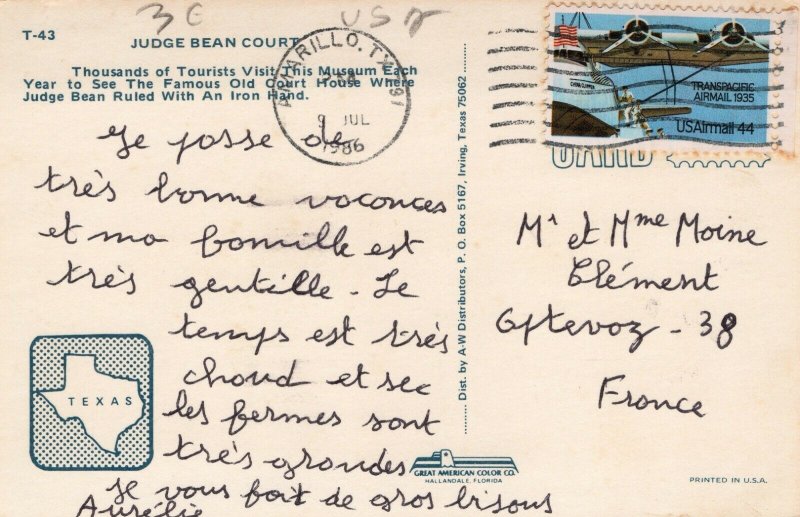 3€
USA
T-43
JUDGE BEAN COURT
Thousands of Tourists Visit This Museum Each
Year to See The Famous Old Court House Where
Judge Bean Ruled With An Iron Hand.
AMARILLO, TX 791
9 JUL
1986
TRANSPACIFIC
AIRMAIL 1935
USAirmail 44
CARD
Je passe de
très bonne vacances
et ma famille est
très gentille - Le
temps est très
chaud et sec
les fermes sont
très grandes
je vous fait de gros bisous
Aurélie
TEXAS
Dist. by A-W Distributors, P. O. Box 5167, Irving, Texas 75062
Mr et Mme Moine
Clément
38
France
GREAT AMERICAN COLOR CO.
HALLANDALE, FLORIDA
PRINTED IN U.S.A.